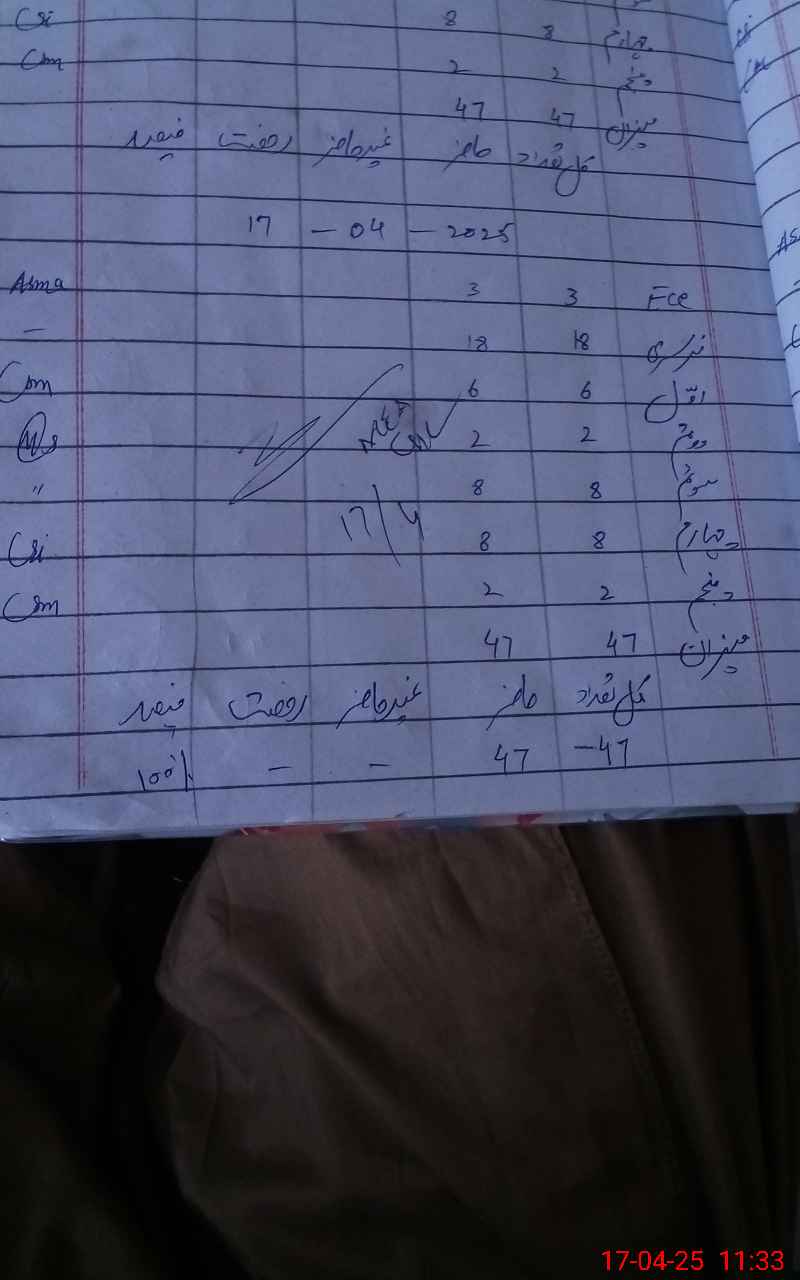 چہارم 8 8 Csi
پنجم 2 2 Cm
میزان 47 47
کل تعداد حاضر غیرحاضر رخصت فیصد
17 - 04 - 2025
ECE 3 3 Asma
نرسری 18 18 -
اوّل 6 6 Cm
دوئم 2 2
سوئم 8 8 "
17/4
چہارم 8 8 Csi
پنجم 2 2 Csm
میزان 47 47
کل تعداد حاضر غیرحاضر رخصت فیصد
47 - 47 - - 100%
17-04-25 11:33